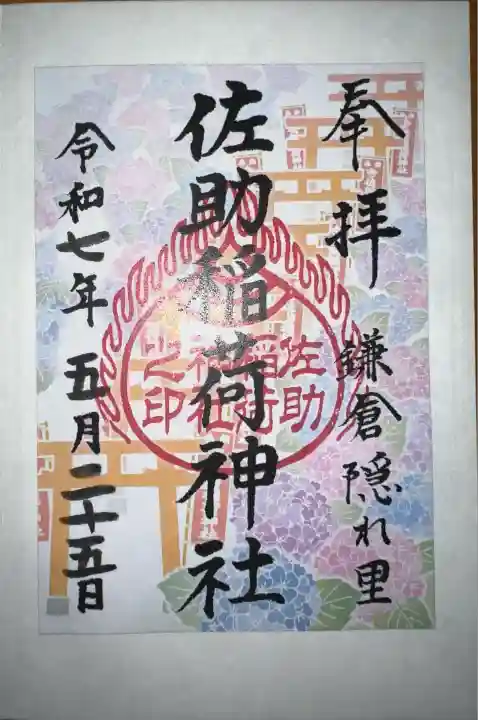 奉拝 鎌倉隠れ里
佐助稲荷神社
佐助
稲荷
神社
之印
令和七年 五月二十五日